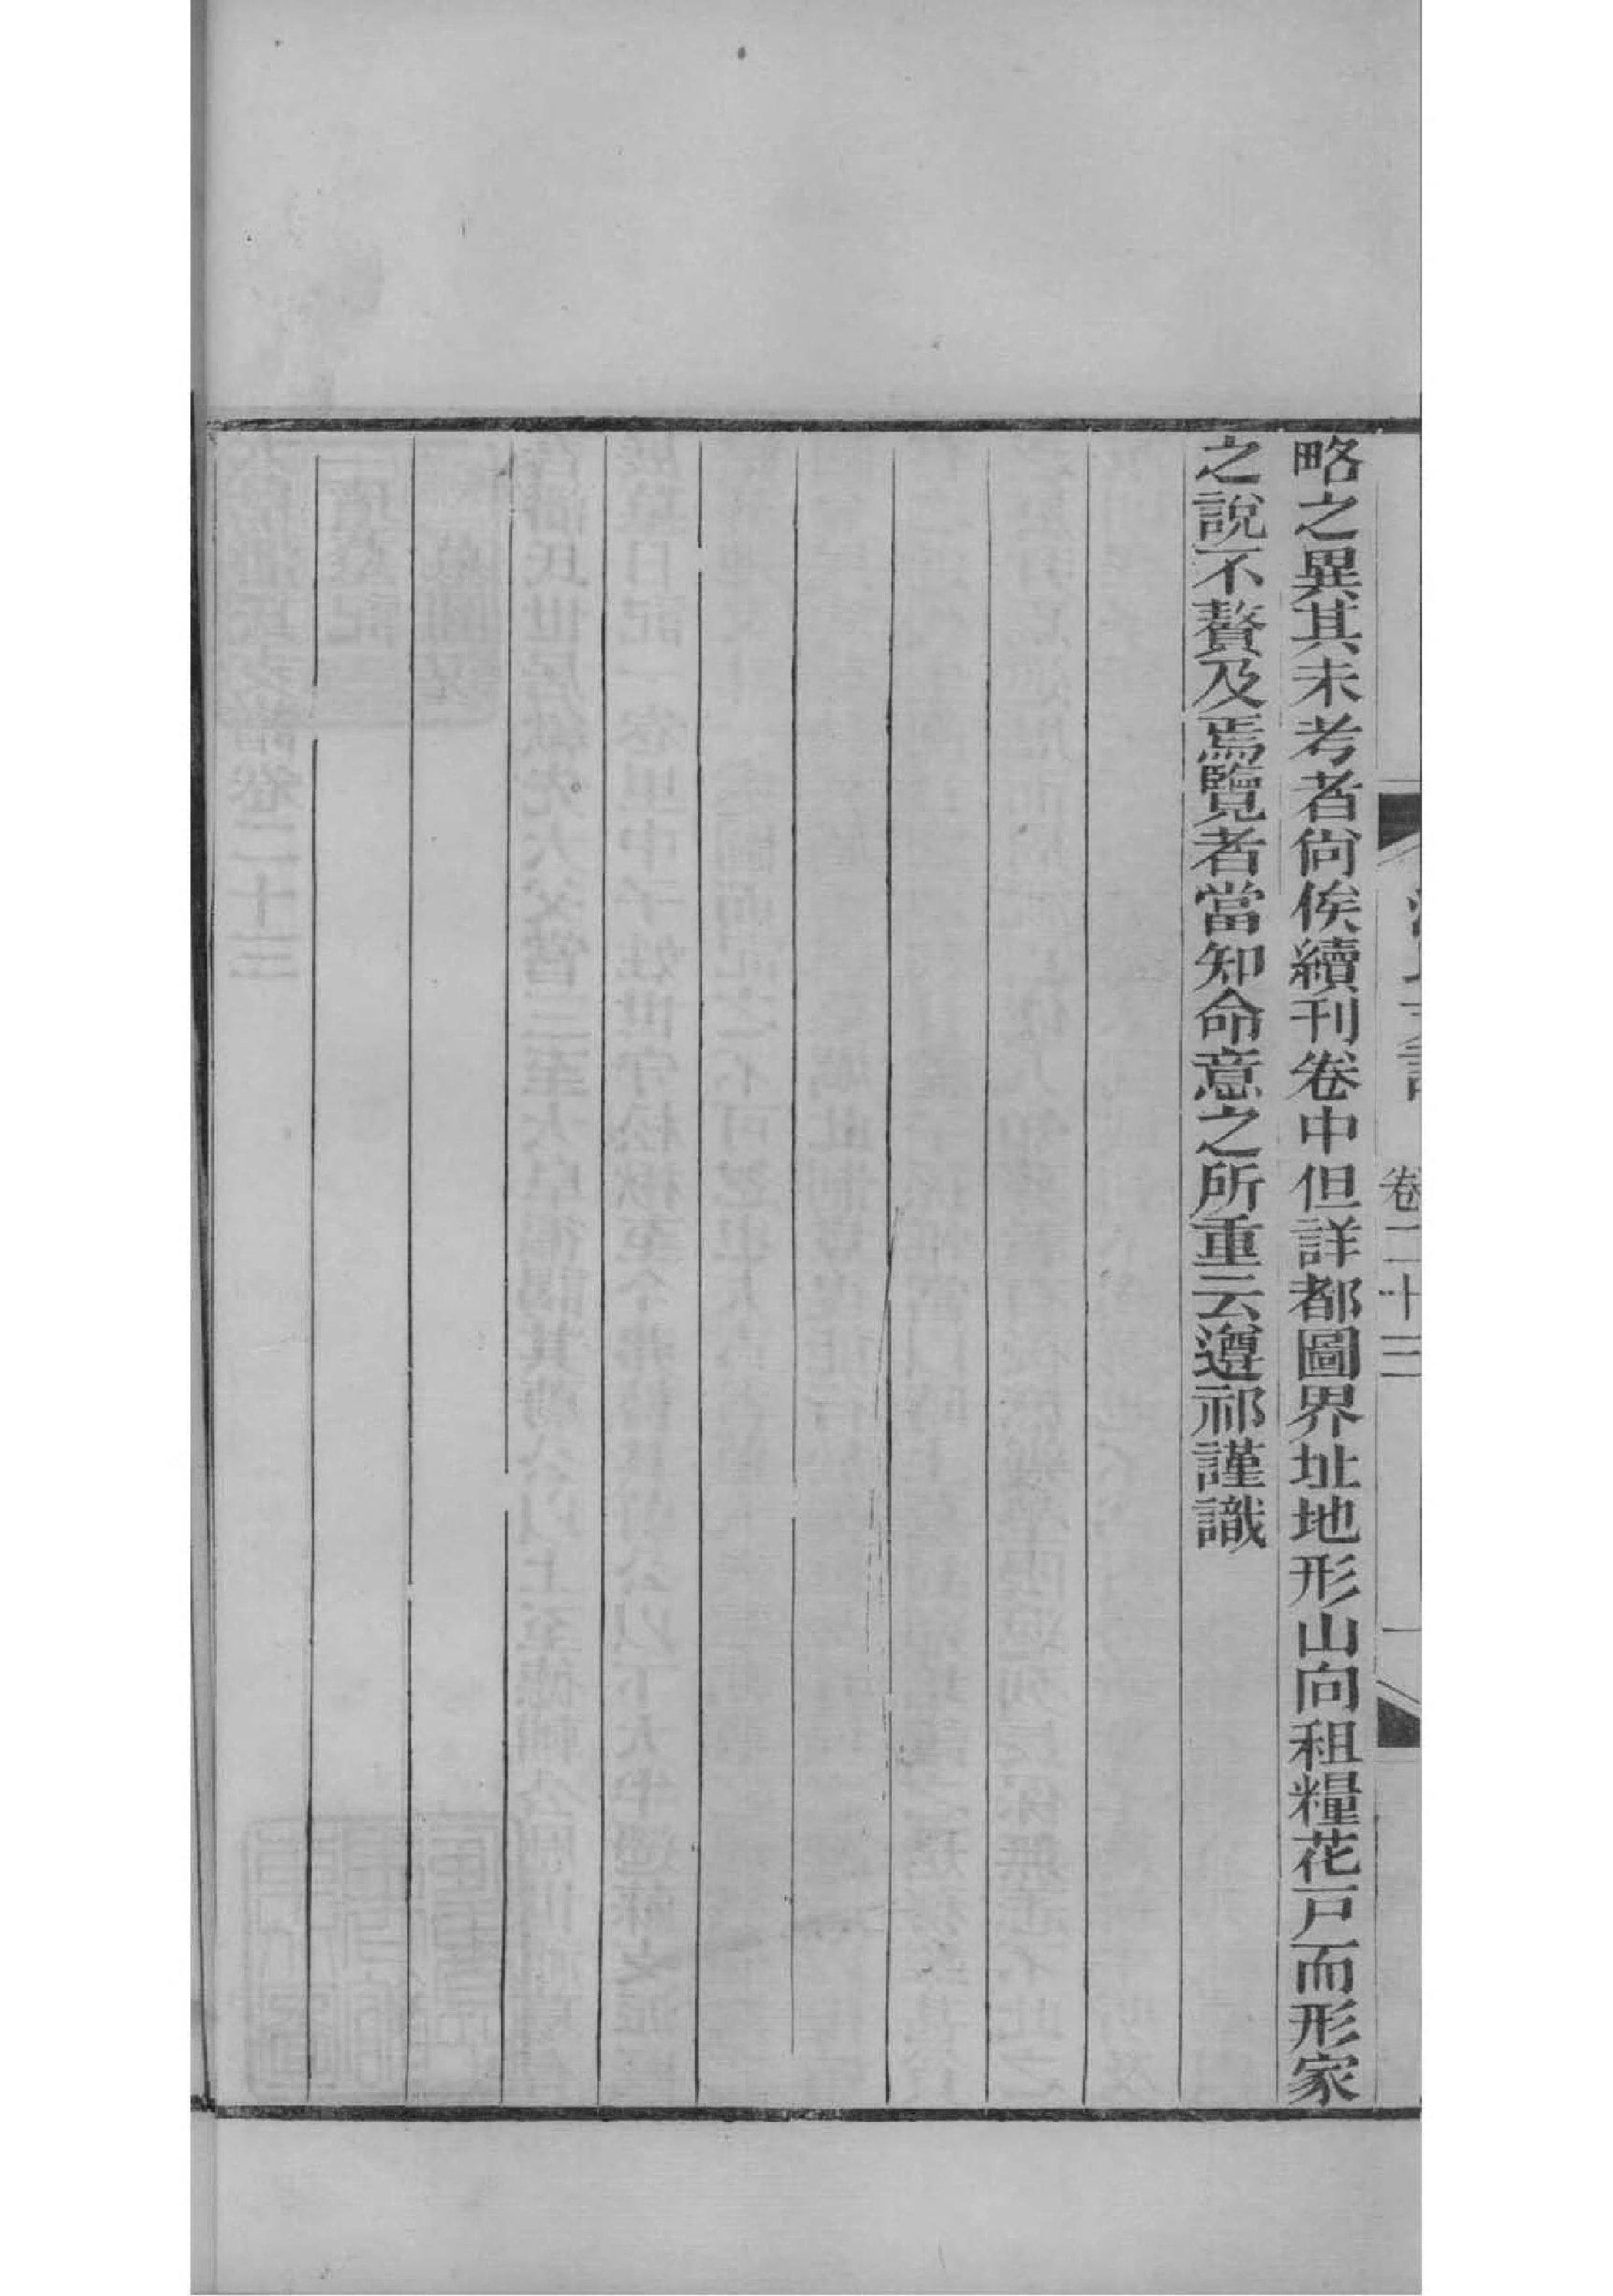 卷二十三
一
略之異其未考者尙俟續刊卷中但詳都圖界址地形山向租糧花戸而形家
之說不贅及焉覽者當知命意之所重云遵祁謹識